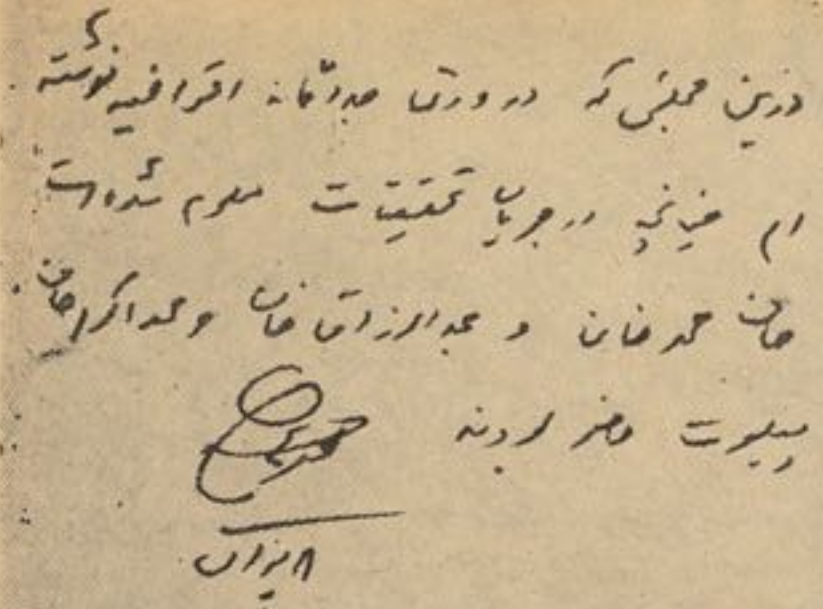 درین مجلس که در ورق جداگانه اقرافیه نوشته
ام چنانچه در جریان تحقیقات معلوم شده است
خان محمد خان و عبدالرزاق خان و محمد اکرم خان
پیلوت حاضر بودند
۸ میزان